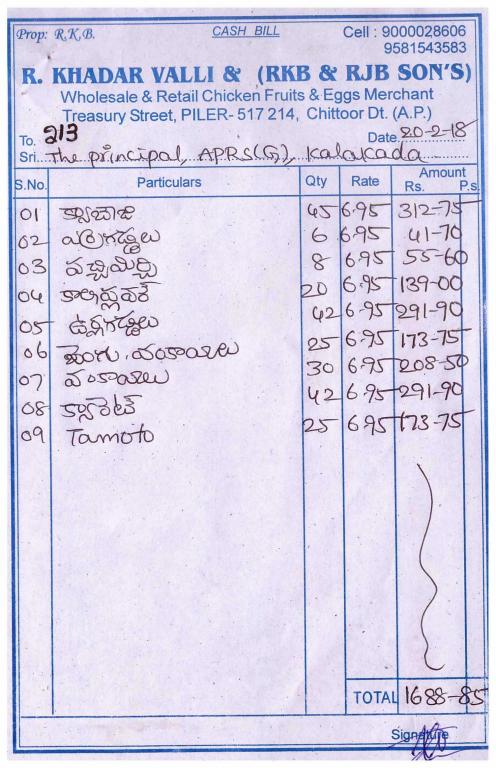 Prop: R.K.B. CASH BILL Cell : 9000028606
9581543583
R. KHADAR VALLI & (RKB & RJB SON'S)
Wholesale & Retail Chicken Fruits & Eggs Merchant
Treasury Street, PILER- 517 214, Chittoor Dt. (A.P.)
To. 213 Date 20-2-18
Sri.. The principal, APRS(G), Kalakada
S.No. Particulars Qty Rate Amount
Rs. P.s.
01 క్యాబేజి 45 6.95 312-75
02 ఎర్రగడ్డలు 6 6.95 41-70
03 పచ్చిమిర్చి 8 6.95 55-60
04 కాలీఫ్లవర్ 20 6.95 139-00
05 ఉర్లగడ్డలు 42 6.95 291-90
06 వంకాయలు 25 6.95 173-75
07 వంకాయలు 30 6.95 208-50
08 క్యారెట్ 42 6.95 291-90
09 Tamoto 25 6.95 173-75
TOTAL 1688-85
Signature